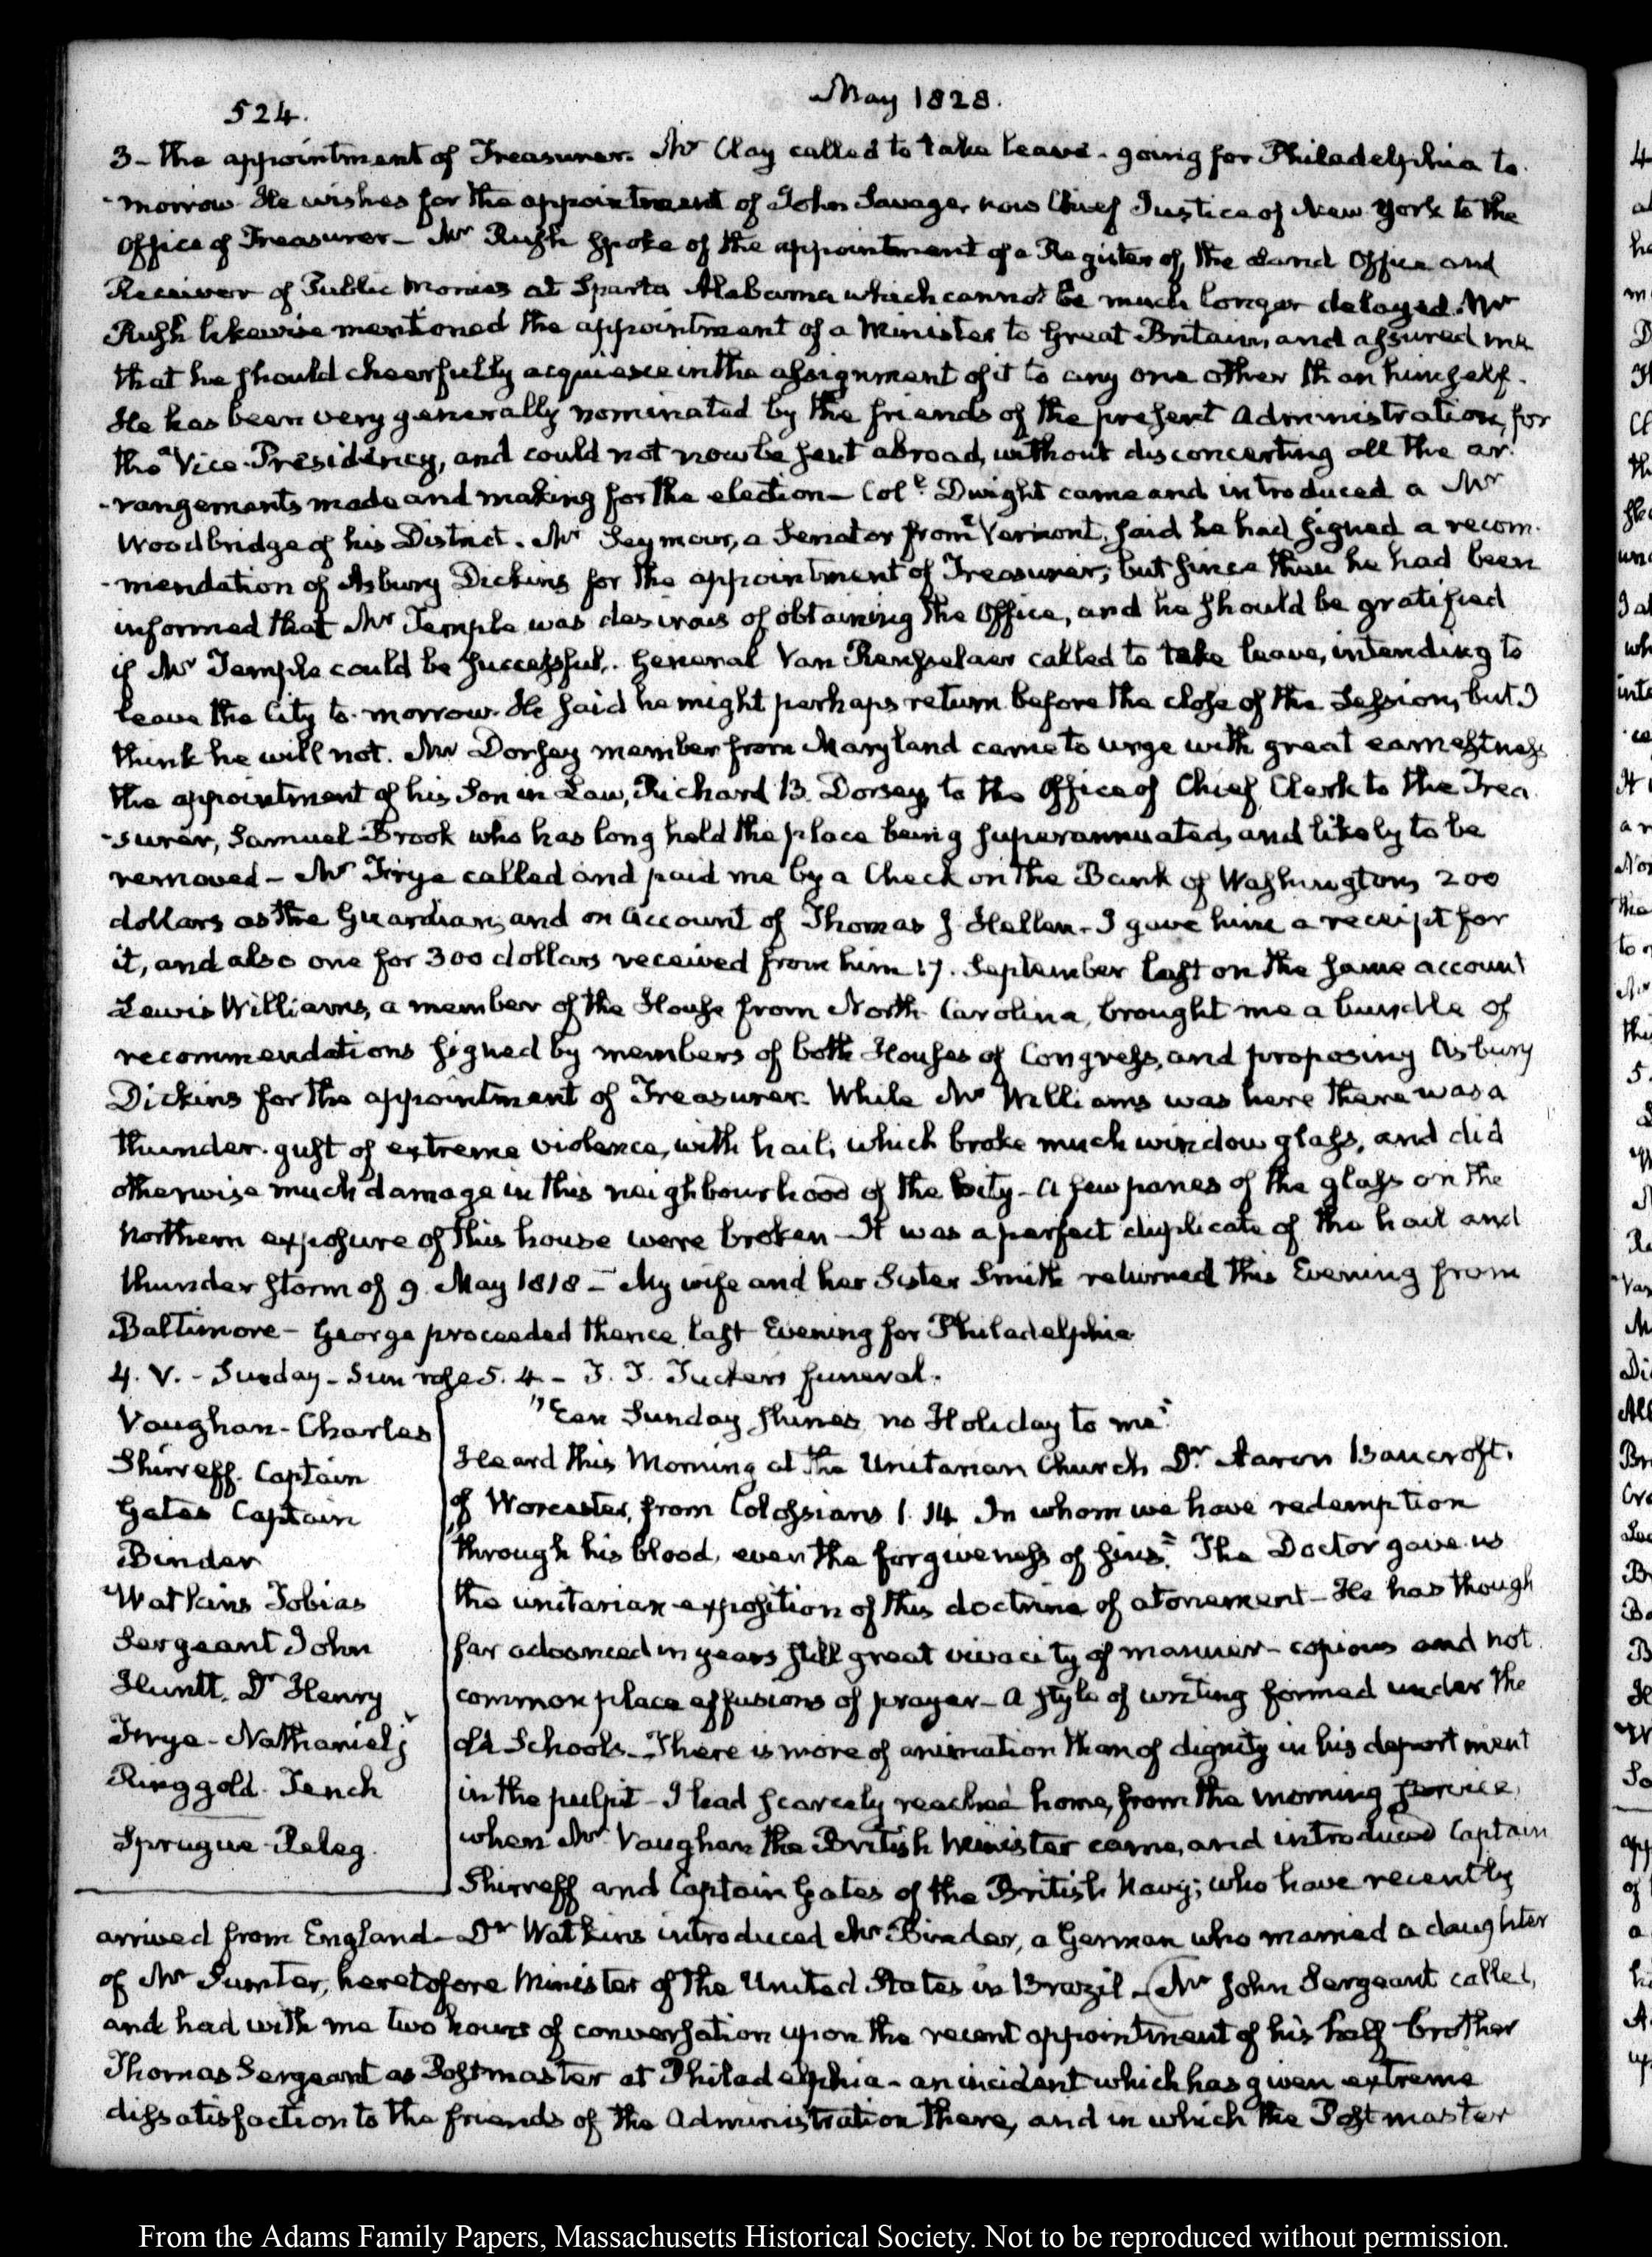 524.
May 1828.
3 - the appointment of Treasurer. Mr Clay called to take leave - going for Philadelphia to-
-morrow. He wishes for the appointment of John Savage, now Chief Justice of New York to the
Office of Treasurer - Mr Rush spoke of the appointment of a Register of the Land Office and
Receiver of Public Monies at Sparta Alabama which cannot be much longer delayed. Mr
Rush likewise mentioned the appointment of a Minister to Great Britain, and assured me
that he should cheerfully acquiesce in the assignment of it to any one other than himself.
He has been very generally nominated by the friends of the present Administration, for
the Vice-Presidency, and could not now be sent abroad, without disconcerting all the ar-
-rangements made and making for the election - Coll. Dwight came and introduced a Mr
Woodbridge of his District. Mr Seymour, a Senator from Vermont, said he had signed a recom-
-mendation of Asbury Dickins for the appointment of Treasurer; but since then he had been
informed that Mr Temple was desirous of obtaining the Office, and he should be gratified
if Mr Temple could be successful. General Van Rensselaer called to take leave, intending to
leave the City to-morrow. He said he might perhaps return before the close of the Session, but I
think he will not. Mr Dorsey member from Maryland came to urge with great earnestness
the appointment of his Son in Law, Richard B. Dorsey, to the Office of Chief Clerk to the Trea-
-surer, Samuel Brook who has long held the place being superannuated, and likely to be
removed - Mr Frye called and paid me by a Check on the Bank of Washington, 200
dollars as the Guardian, and on account of Thomas J Hellen - I gave him a receipt for
it, and also one for 300 dollars received from him 17. September last on the same account
Lewis Williams, a member of the House from North Carolina, brought me a bundle of
recommendations signed by members of both Houses of Congress, and proposing Asbury
Dickins for the appointment of Treasurer. While Mr Williams was here there was a
thunder-gust of extreme violence, with hail, which broke much window glass, and did
otherwise much damage in this neighbourhood of the City - A few panes of the glass on the
Northern exposure of this house were broken - It was a perfect duplicate of the hail and
thunder storm of 9. May 1818 - My wife and her Sister Smith returned this Evening from
Baltimore - George proceeded thence last Evening for Philadelphia
4. V. - Sunday - Sun rose 5. 4 - T. T. Tuckers funeral.
Vaughan - Charles
Shirreff. Captain
Gates Captain
Binder
Watkins Tobias
Sergeant John
Huntt. Dr Henry
Frye - Nathaniel jr
Ringgold. Tench
Sprague. Peleg.
"E'en Sunday shines no Holiday to me"
Heard this Morning at the Unitarian Church Dr Aaron Bancroft.
of Worcester, from Colossians 1. 14 In whom we have redemption
"through his blood, even the forgiveness of sins." The Doctor gave us
the unitarian exposition of this doctrine of atonement - He has though
far advanced in years still great vivacity of manner - copious and not
common place effusions of prayer - a style of writing formed under the
old Schools - There is more of animation than of dignity in his deportment
in the pulpit - I had scarcely reached home, from the morning service,
when Mr Vaughan the British Minister came, and introduced Captain
Shirreff and Captain Gates of the British Navy; who have recently
arrived from England - Dr Watkins introduced Mr Binder, a German who married a daughter
of Mr Sumter, heretofore Minister of the United States in Brazil - Mr John Sergeant called,
and had with me two hours of conversation upon the recent appointment of his half brother
Thomas Sergeant as Postmaster at Philadelphia - an incident which has given extreme
dissatisfaction to the friends of the Administration there, and in which the Postmaster
From the Adams Family Papers, Massachusetts Historical Society. Not to be reproduced without permission.